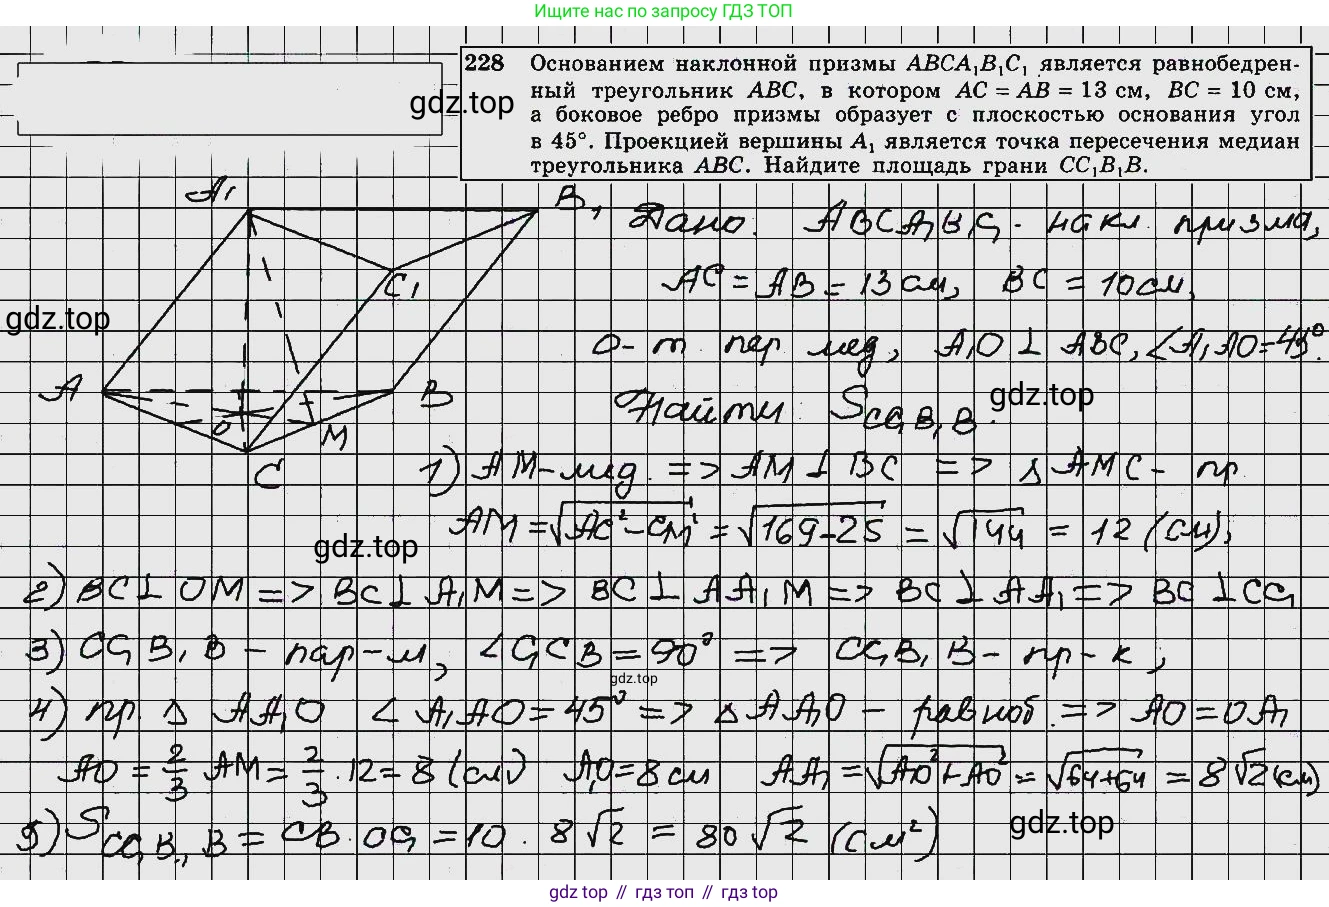 Ищите нас по запросу ГДЗ ТОП
228 Основанием наклонной призмы ABCA₁B₁C₁ является равнобедрен-
ный треугольник ABC, в котором AC = AB = 13 см, BC = 10 см,
а боковое ребро призмы образует с плоскостью основания угол
в 45°. Проекцией вершины A₁ является точка пересечения медиан
треугольника ABC. Найдите площадь грани CC₁B₁B.
gdz.top
A₁
B₁
C₁
A
B
O
M
C
gdz.top
Дано: ABCA₁B₁C₁ - накл. призма,
AC = AB = 13 см, BC = 10 см,
O - т. пер. мед, A₁O ⊥ ABC, ∠A₁AO = 45°.
gdz.top
Найти S CC₁B₁B.
1) AM - мед. => AM ⊥ BC => △ AMC - пр
AM = √AC² - CM² = √169-25 = √144 = 12 (см);
gdz.top
2) BC ⊥ OM => BC ⊥ A₁M => BC ⊥ AA₁M => BC ⊥ AA₁ => BC ⊥ CC₁
3) CC₁B₁B - пар-м, ∠C₁CB = 90° => CC₁B₁B - пр-к,
gdz.top
4) пр. △ AA₁O ∠A₁AO = 45° => △ AA₁O - равноб. => AO = OA₁
AO = 2/3 AM = 2/3 · 12 = 8 (см) A₁O = 8 см AA₁ = √A₁O² + AO² = √64+64 = 8√2 (см)
5) S CC₁B₁B = CB · CC₁ = 10 · 8√2 = 80√2 (см²)
gdz.top
gdz top // гдз топ // gdz top